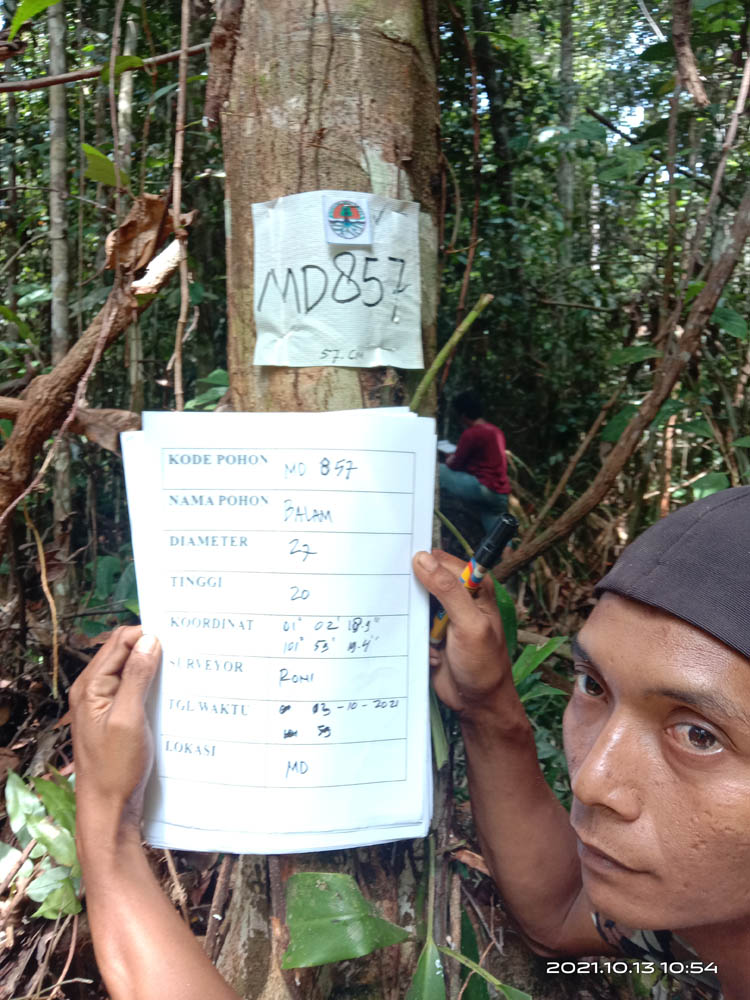 MD857
57. CM
KODE POHON MD 857
NAMA POHON BALAM
DIAMETER 27
TINGGI 20
KOORDINAT 01° 02' 18.9"
101° 53' 19.4"
SURVEYOR RONI
TGL WAKTU 03 - 10 - 2021
59
LOKASI MD
2021.10.13 10:54